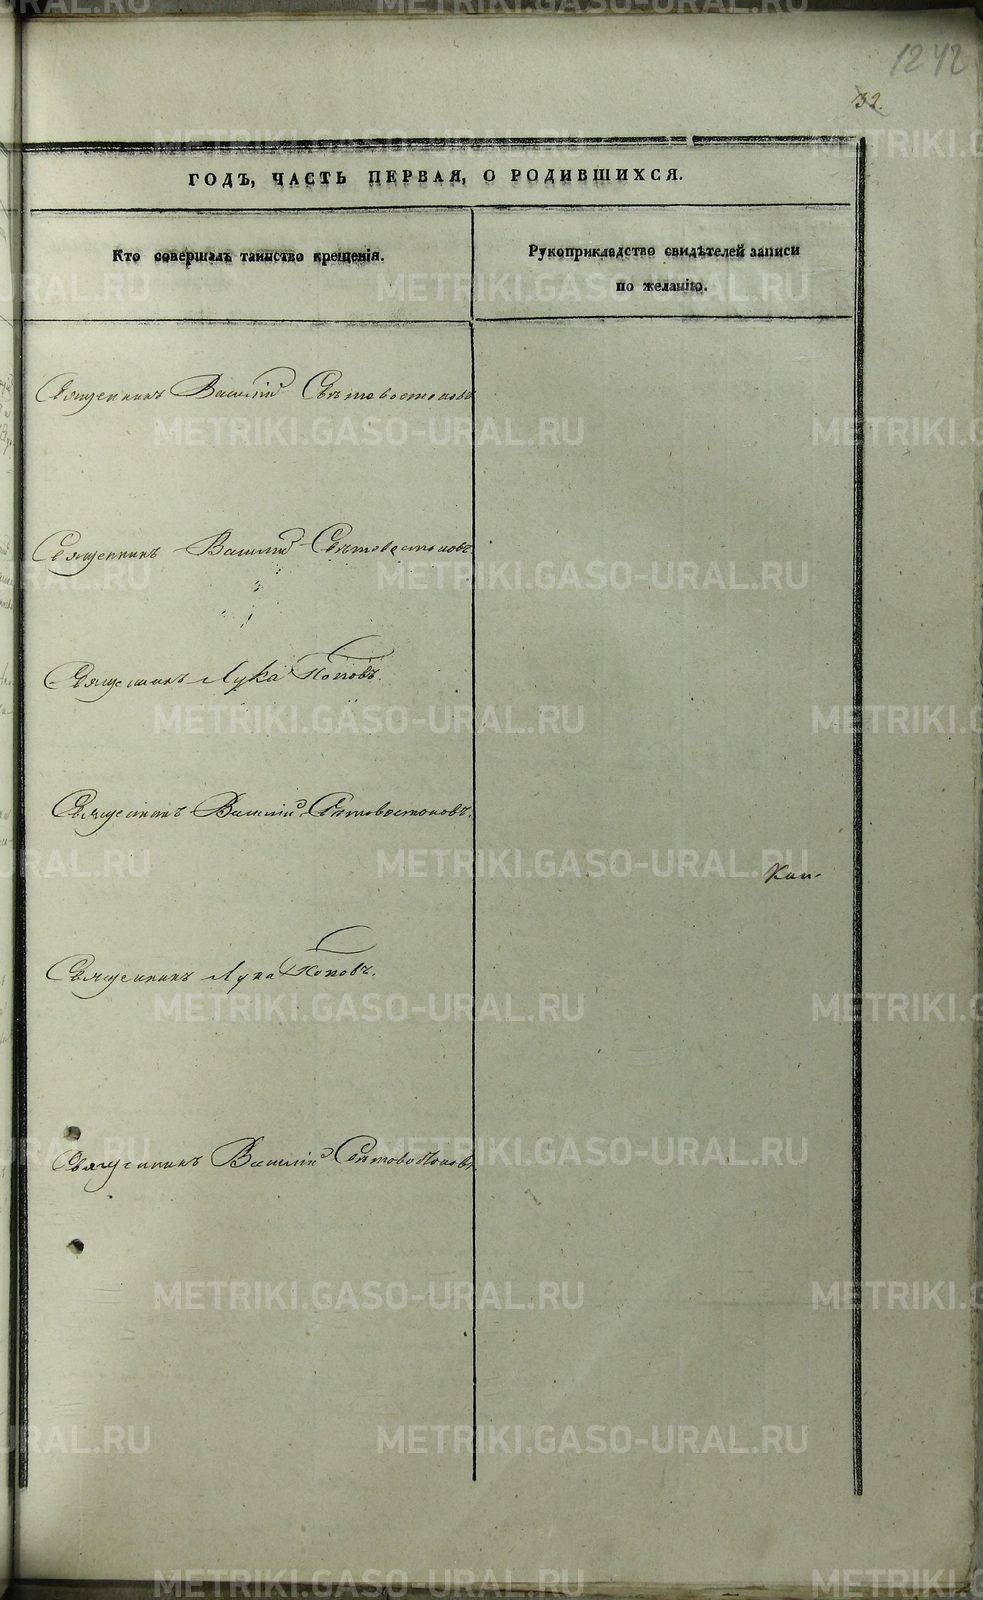 1242
32.
ГОДЪ, ЧАСТЬ ПЕРВАЯ, О РОДИВШИХСЯ.
Кто совершалъ таинство крещенія.
Рукоприкладство свидѣтелей записи
по желанію.
Священникъ Василій Свѣтовостоковъ
Священникъ Василій Свѣтовостоковъ
Священникъ Лука Поповъ.
Священникъ Василій Свѣтовостоковъ.
Священникъ Лука Поповъ.
Священникъ Василій Свѣтовостоковъ
METRIKI.GASO-URAL.RU